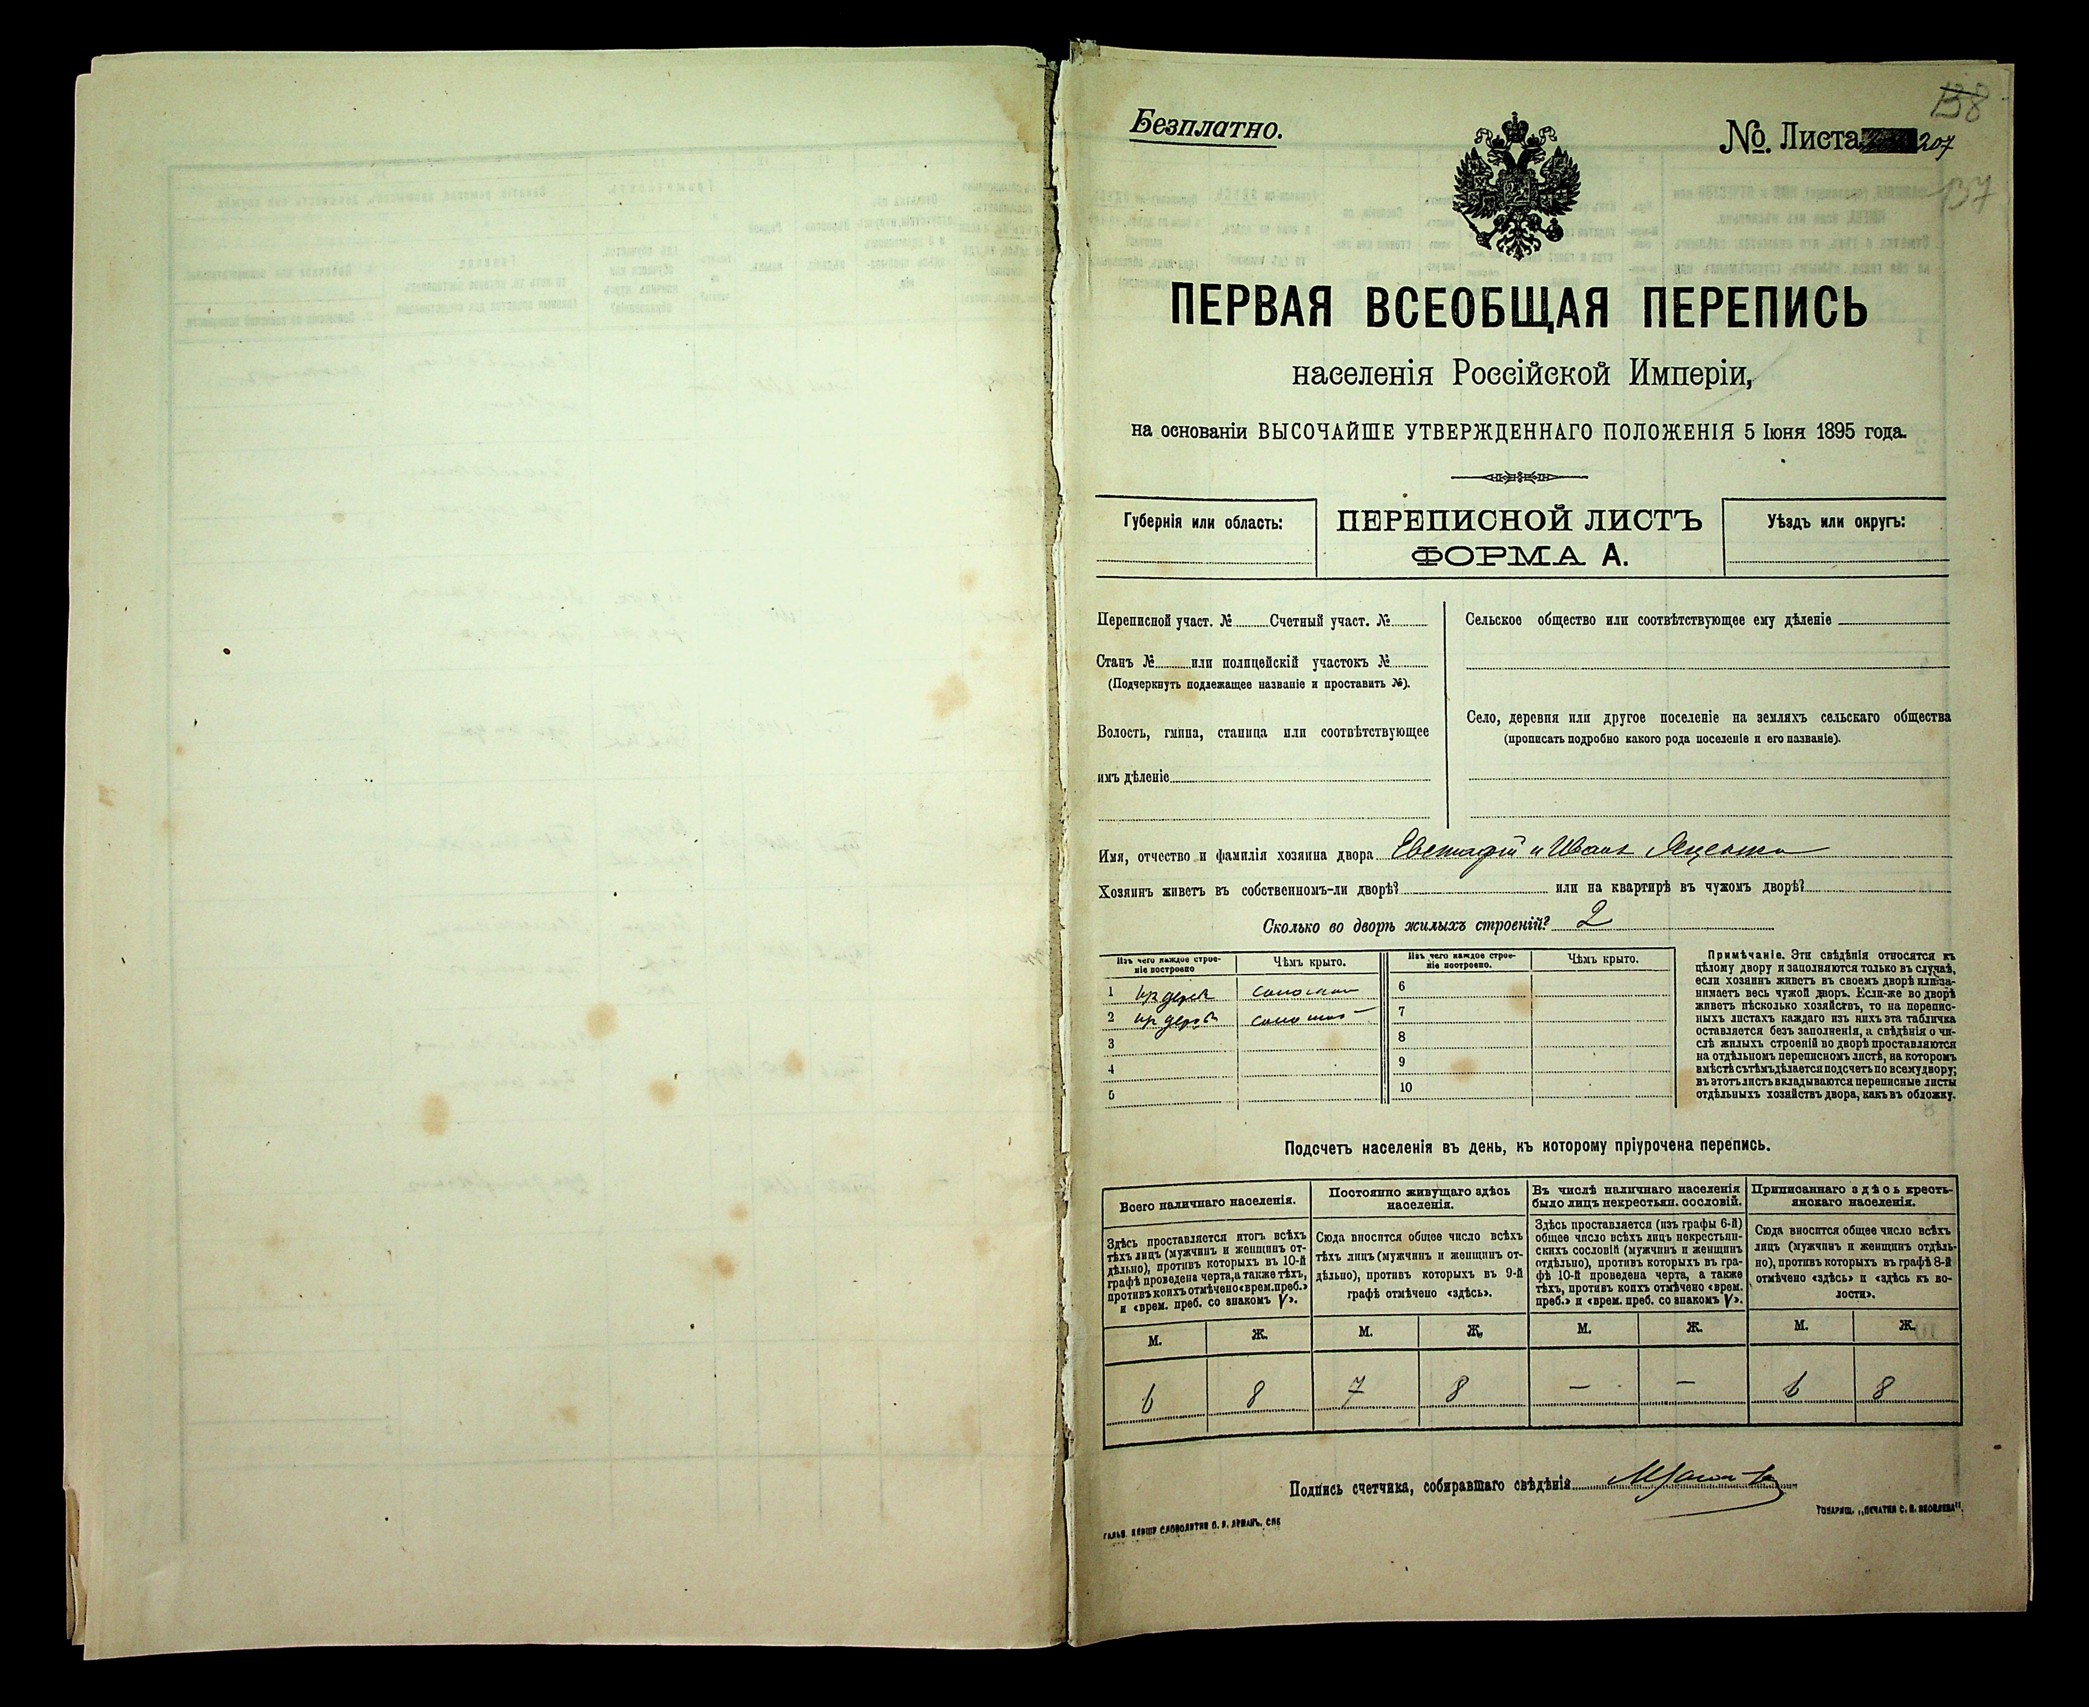 138
Безплатно.
№. Листа 207
137
ПЕРВАЯ ВСЕОБЩАЯ ПЕРЕПИСЬ
населенія Россійской Имперіи,
на основаніи ВЫСОЧАЙШЕ УТВЕРЖДЕННАГО ПОЛОЖЕНІЯ 5 Іюня 1895 года.
Губернія или область:
ПЕРЕПИСНОЙ ЛИСТЪ
ФОРМА А.
Уѣздъ или округъ:
Переписной участ. № Счетный участ. №
Станъ № или полицейскій участокъ №
(Подчеркнуть подлежащее названіе и проставить №).
Волость, гмина, станица или соотвѣтствующее
имъ дѣленіе
Сельское общество или соотвѣтствующее ему дѣленіе
Село, деревня или другое поселеніе на земляхъ сельскаго общества
(прописать подробно какого рода поселеніе и его названіе).
Имя, отчество и фамилія хозяина двора Евстафій и Иванъ
Хозяинъ живетъ въ собственномъ-ли дворѣ? или на квартирѣ въ чужомъ дворѣ?
Сколько во дворѣ жилыхъ строеній? 2
Изъ чего каждое строе-
ніе построено
Чѣмъ крыто.
Изъ чего каждое строе-
ніе построено.
Чѣмъ крыто.
1
2
3
4
5
6
7
8
9
10
Примѣчаніе. Эти свѣдѣнія относятся къ
цѣлому двору и заполняются только въ случаѣ,
если хозяинъ живетъ въ своемъ дворѣ или за-
нимаетъ весь чужой дворъ. Если-же во дворѣ
живетъ нѣсколько хозяйствъ, то на перепис-
ныхъ листахъ каждаго изъ нихъ эта табличка
оставляется безъ заполненія, а свѣдѣнія о чи-
слѣ жилыхъ строеній во дворѣ проставляются
на отдѣльномъ переписномъ листѣ, на которомъ
вмѣстѣ съ тѣмъ дѣлается подсчетъ по всему двору;
въ этотъ листъ вкладываются переписные листы
отдѣльныхъ хозяйствъ двора, какъ въ обложку.
Подсчетъ населенія въ день, къ которому пріурочена перепись.
Всего наличнаго населенія.
Здѣсь проставляется итогъ всѣхъ
тѣхъ лицъ (мужчинъ и женщинъ от-
дѣльно), противъ которыхъ въ 10-й
графѣ проведена черта, а также тѣхъ,
противъ коихъ отмѣчено «врем. преб.»
и «врем. преб. со знакомъ V».
Постоянно живущаго здѣсь
населенія.
Сюда вносится общее число всѣхъ
тѣхъ лицъ (мужчинъ и женщинъ от-
дѣльно), противъ которыхъ въ 9-й
графѣ отмѣчено «здѣсь».
Въ числѣ наличнаго населенія
было лицъ некрестьян. сословій.
Здѣсь проставляется (изъ графы 6-й)
общее число всѣхъ лицъ некрестьян-
скихъ сословій (мужчинъ и женщинъ
отдѣльно), противъ которыхъ въ гра-
фѣ 10-й проведена черта, а также
тѣхъ, противъ коихъ отмѣчено «врем.
преб.» и «врем. преб. со знакомъ V».
Приписаннаго здѣсь кресть-
янскаго населенія.
Сюда вносится общее число всѣхъ
лицъ (мужчинъ и женщинъ отдѣль-
но), противъ которыхъ въ графѣ 8-й
отмѣчено «здѣсь» и «здѣсь къ во-
лости».
М. Ж. М. Ж. М. Ж. М. Ж.
6 8 7 8 — — 6 8
Подпись счетчика, собиравшаго свѣдѣнія
ТОВАРИЩ. „ПЕЧАТНЯ С. П. ЯКОВЛЕВА".